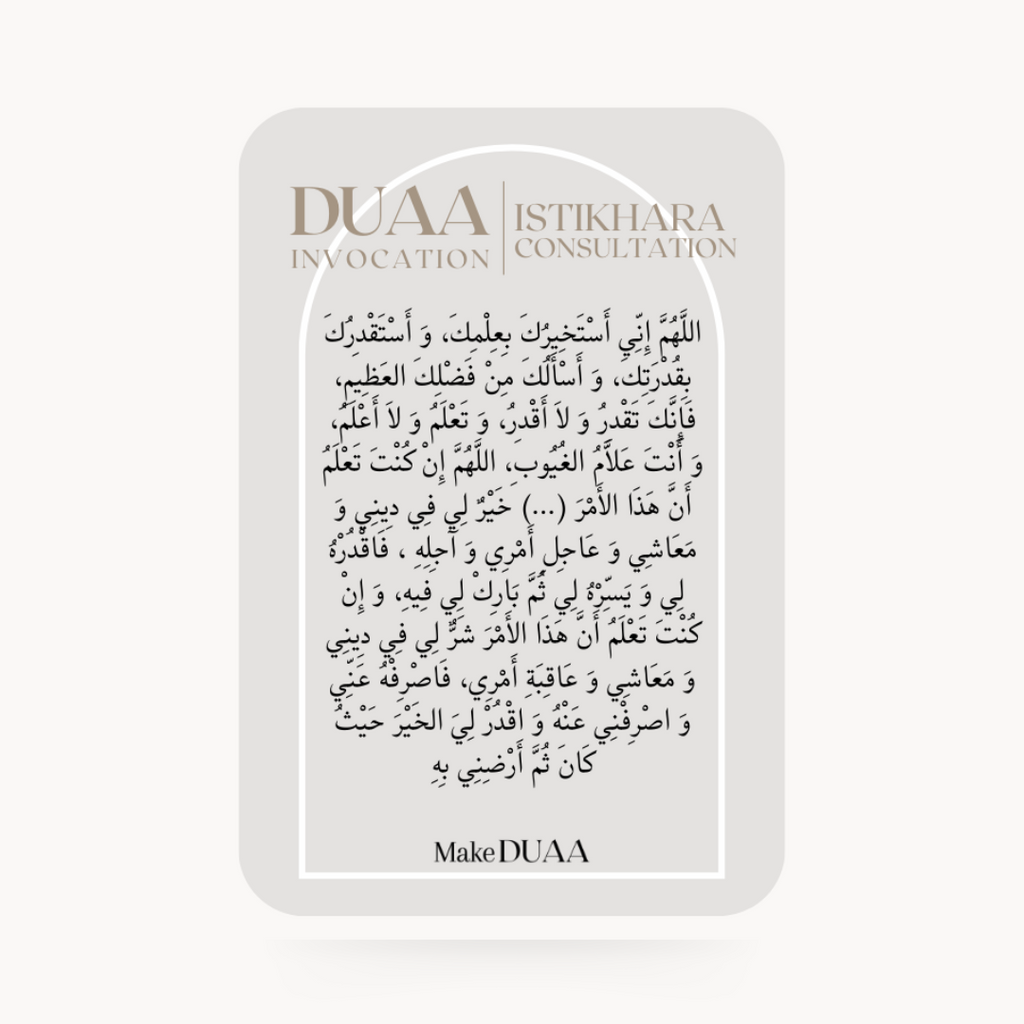 DUAA
INVOCATION
ISTIKHARA
CONSULTATION
اللَّهُمَّ إِنِّي أَسْتَخِيرُكَ بِعِلْمِكَ، وَ أَسْتَقْدِرُكَ
بِقُدْرَتِكَ، وَ أَسْأَلُكَ مِنْ فَضْلِكَ العَظِيمِ،
فَإِنَّكَ تَقْدِرُ وَ لاَ أَقْدِرُ، وَ تَعْلَمُ وَ لاَ أَعْلَمُ،
وَ أَنْتَ عَلاَّمُ الغُيُوبِ، اللَّهُمَّ إِنْ كُنْتَ تَعْلَمُ
أَنَّ هَذَا الأَمْرَ (...) خَيْرٌ لِي فِي دِينِي وَ
مَعَاشِي وَ عَاجِلِ أَمْرِي وَ آجِلِهِ ، فَاقْدُرْهُ
لِي وَ يَسِّرْهُ لِي ثُمَّ بَارِكْ لِي فِيهِ، وَ إِنْ
كُنْتَ تَعْلَمُ أَنَّ هَذَا الأَمْرَ شَرٌّ لِي فِي دِينِي
وَ مَعَاشِي وَ عَاقِبَةِ أَمْرِي، فَاصْرِفْهُ عَنِّي
وَ اصْرِفْنِي عَنْهُ وَ اقْدُرْ لِيَ الخَيْرَ حَيْثُ
كَانَ ثُمَّ أَرْضِنِي بِهِ
Make DUAA